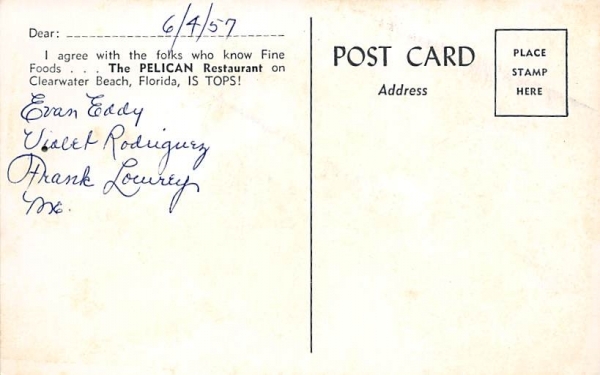 Dear: 6/4/57
I agree with the folks who know Fine
Foods . . . The PELICAN Restaurant on
Clearwater Beach, Florida, IS TOPS!
Evan Eddy
Violet Rodriguez
Frank Lowrey
POST CARD
Address
PLACE
STAMP
HERE